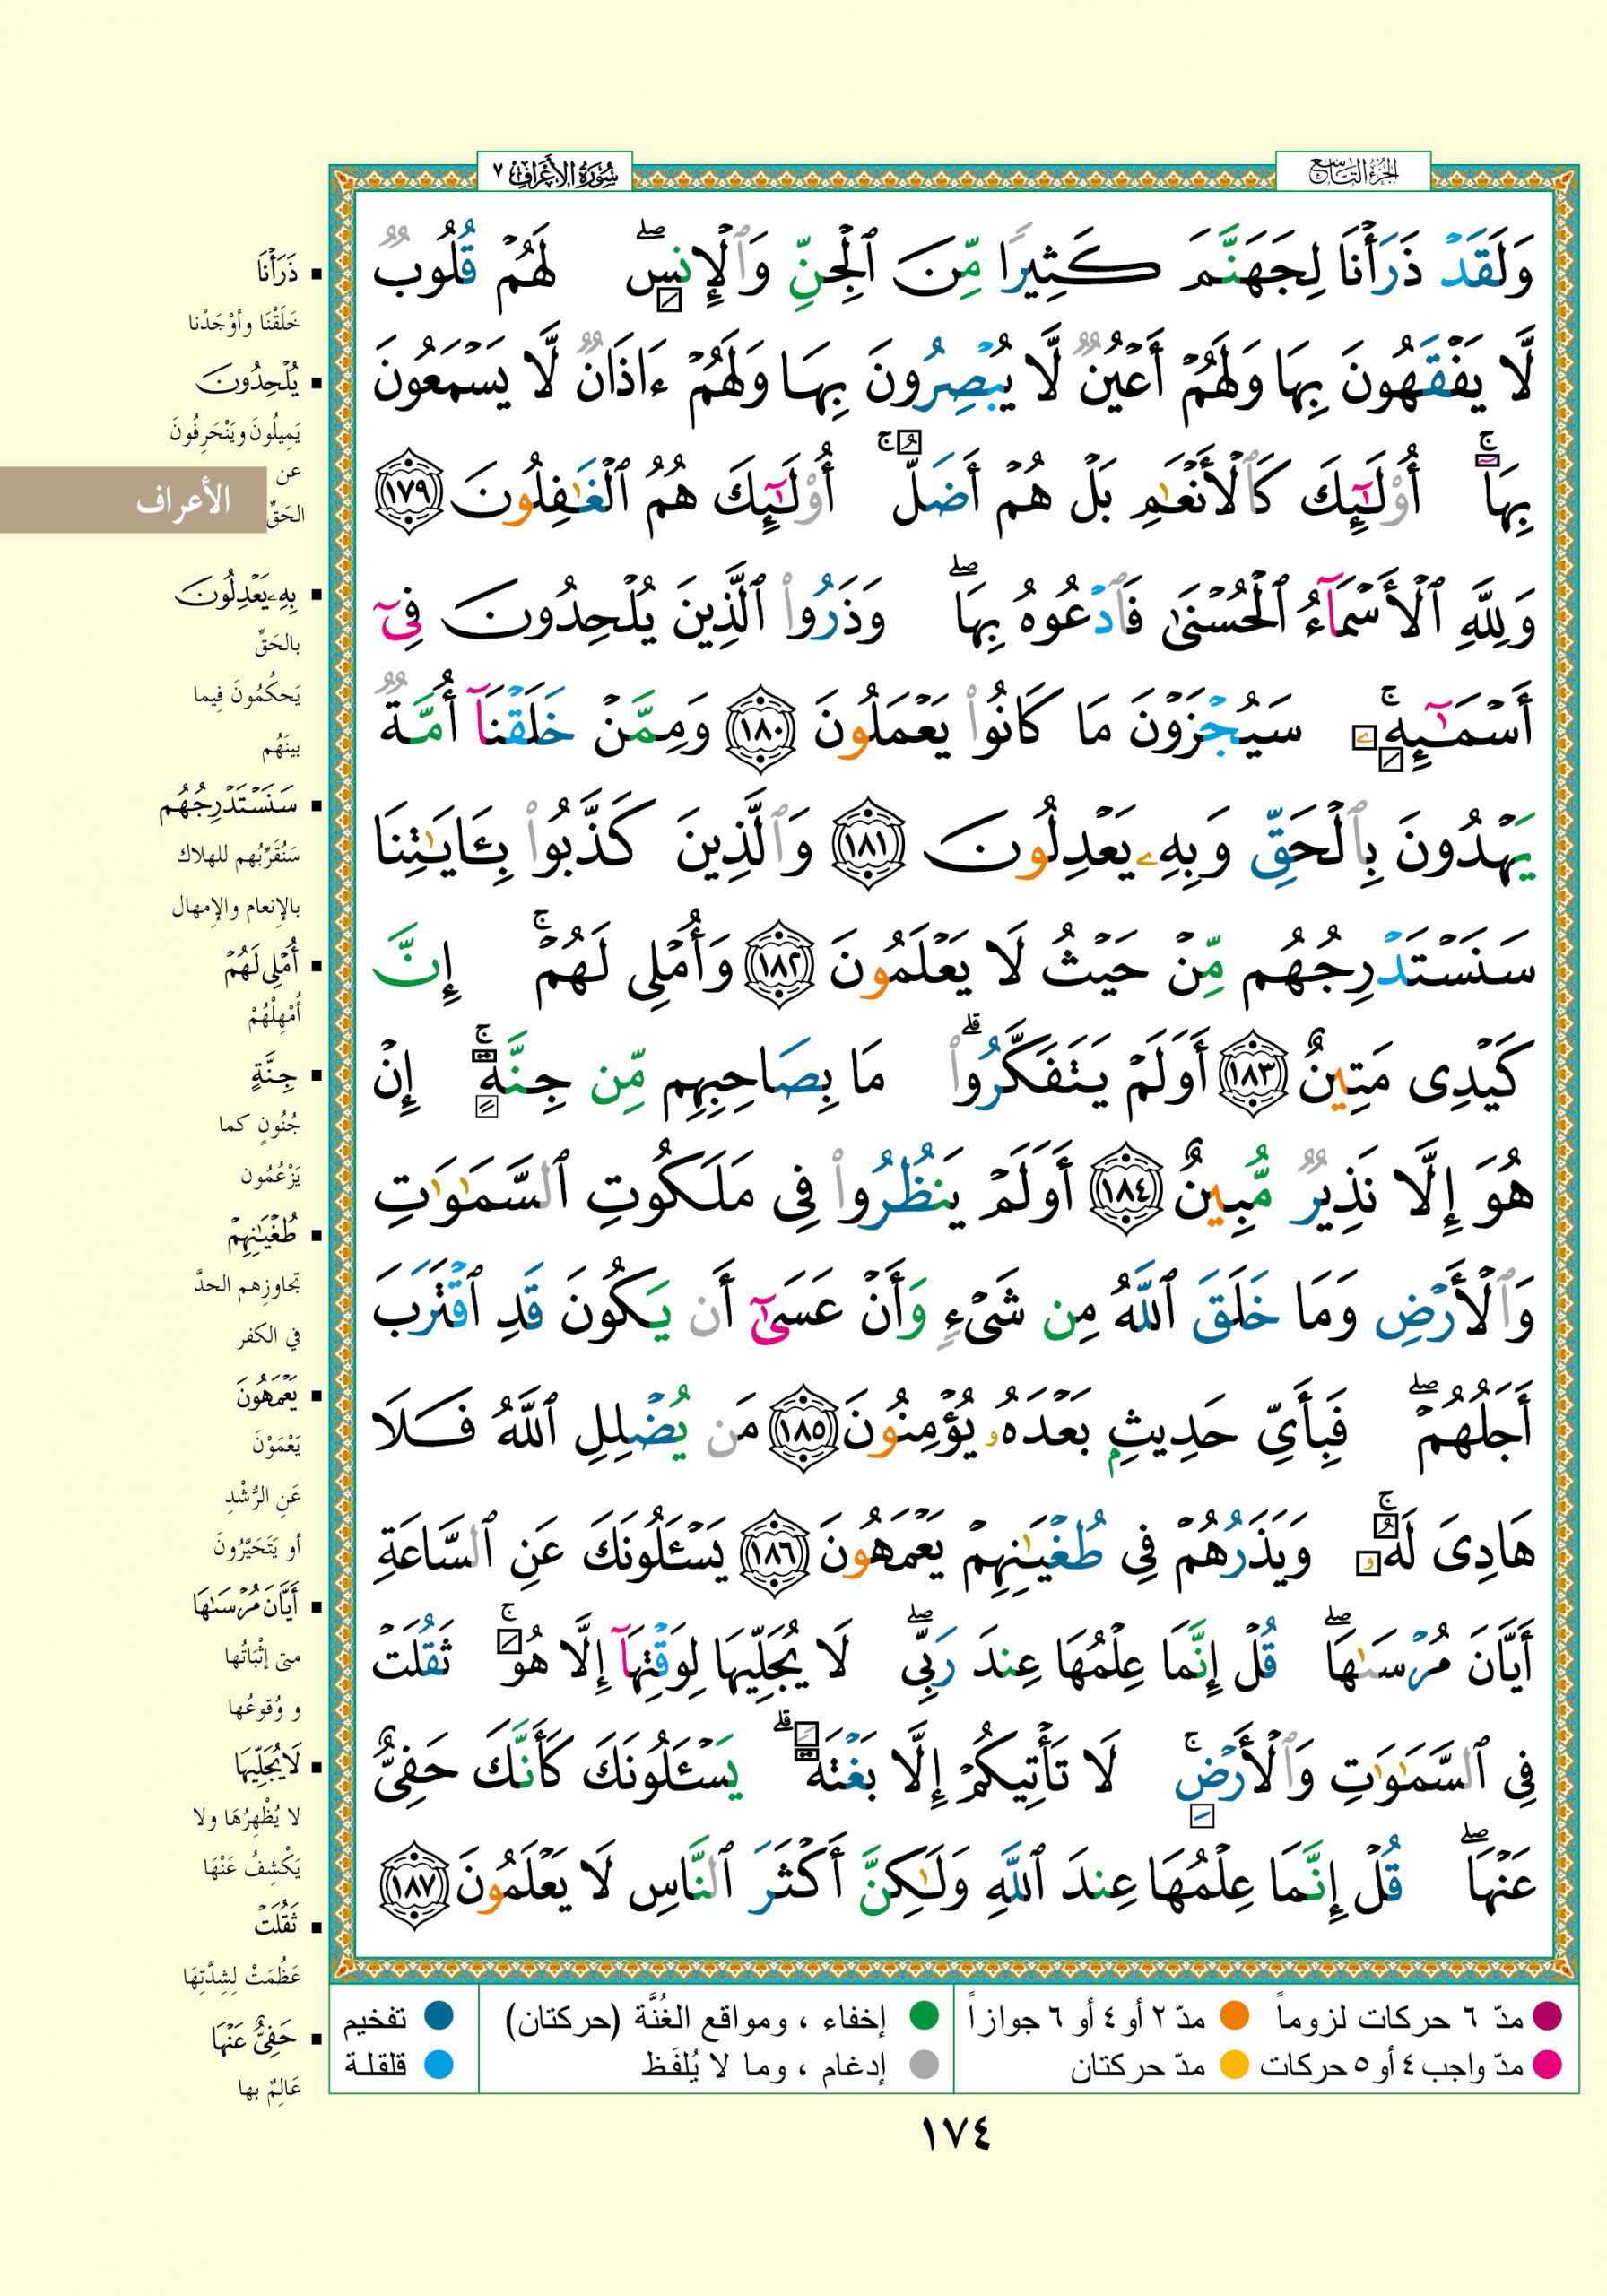 الجزء التاسع
سورة الأعراف ٧
وَلَقَدْ ذَرَأْنَا لِجَهَنَّمَ كَثِيرًا مِّنَ ٱلْجِنِّ وَٱلْإِنسِ ۖ لَهُمْ قُلُوبٌ
لَّا يَفْقَهُونَ بِهَا وَلَهُمْ أَعْيُنٌ لَّا يُبْصِرُونَ بِهَا وَلَهُمْ ءَاذَانٌ لَّا يَسْمَعُونَ
بِهَآ ۚ أُو۟لَـٰٓئِكَ كَٱلْأَنْعَـٰمِ بَلْ هُمْ أَضَلُّ ۚ أُو۟لَـٰٓئِكَ هُمُ ٱلْغَـٰفِلُونَ ١٧٩
وَلِلَّهِ ٱلْأَسْمَآءُ ٱلْحُسْنَىٰ فَٱدْعُوهُ بِهَا ۖ وَذَرُوا۟ ٱلَّذِينَ يُلْحِدُونَ فِىٓ
أَسْمَـٰٓئِهِۦ ۚ سَيُجْزَوْنَ مَا كَانُوا۟ يَعْمَلُونَ ١٨٠ وَمِمَّنْ خَلَقْنَآ أُمَّةٌ
يَهْدُونَ بِٱلْحَقِّ وَبِهِۦ يَعْدِلُونَ ١٨١ وَٱلَّذِينَ كَذَّبُوا۟ بِـَٔايَـٰتِنَا
سَنَسْتَدْرِجُهُم مِّنْ حَيْثُ لَا يَعْلَمُونَ ١٨٢ وَأُمْلِى لَهُمْ ۚ إِنَّ
كَيْدِى مَتِينٌ ١٨٣ أَوَلَمْ يَتَفَكَّرُوا۟ ۗ مَا بِصَاحِبِهِم مِّن جِنَّةٍ ۚ إِنْ
هُوَ إِلَّا نَذِيرٌ مُّبِينٌ ١٨٤ أَوَلَمْ يَنظُرُوا۟ فِى مَلَكُوتِ ٱلسَّمَـٰوَٰتِ
وَٱلْأَرْضِ وَمَا خَلَقَ ٱللَّهُ مِن شَىْءٍ وَأَنْ عَسَىٰٓ أَن يَكُونَ قَدِ ٱقْتَرَبَ
أَجَلُهُمْ ۖ فَبِأَىِّ حَدِيثٍۭ بَعْدَهُۥ يُؤْمِنُونَ ١٨٥ مَن يُضْلِلِ ٱللَّهُ فَلَا
هَادِىَ لَهُۥ ۚ وَيَذَرُهُمْ فِى طُغْيَـٰنِهِمْ يَعْمَهُونَ ١٨٦ يَسْـَٔلُونَكَ عَنِ ٱلسَّاعَةِ
أَيَّانَ مُرْسَىٰهَا ۖ قُلْ إِنَّمَا عِلْمُهَا عِندَ رَبِّى ۖ لَا يُجَلِّيهَا لِوَقْتِهَآ إِلَّا هُوَ ۚ ثَقُلَتْ
فِى ٱلسَّمَـٰوَٰتِ وَٱلْأَرْضِ ۚ لَا تَأْتِيكُمْ إِلَّا بَغْتَةً ۗ يَسْـَٔلُونَكَ كَأَنَّكَ حَفِىٌّ
عَنْهَا ۖ قُلْ إِنَّمَا عِلْمُهَا عِندَ ٱللَّهِ وَلَـٰكِنَّ أَكْثَرَ ٱلنَّاسِ لَا يَعْلَمُونَ ١٨٧
ذَرَأْنَا
خَلَقْنَا وأوْجَدْنا
يُلْحِدُونَ
يَمِيلُونَ ويَنْحَرِفُونَ
عن
الحَقِّ
الأعراف
بِهِۦ يَعْدِلُونَ
بالحَقِّ
يَحكُمُونَ فِيما
بينَهُم
سَنَسْتَدْرِجُهُم
سَنُقَرِّبُهم للهلاك
بالإنعام والإمهال
أُمْلِى لَهُمْ
أُمْهِلُهُمْ
جِنَّةٍ
جُنُونٍ كما
يَزْعُمُون
طُغْيَـٰنِهِمْ
تجاوزِهم الحدَّ
في الكفر
يَعْمَهُونَ
يَعْمَوْنَ
عَنِ الرُّشْدِ
أو يَتَحَيَّرُونَ
أَيَّانَ مُرْسَىٰهَا
متى إثْبَاتُها
و وُقوعُها
لَا يُجَلِّيهَا
لا يُظْهِرُهَا ولا
يَكْشِفُ عَنْهَا
ثَقُلَتْ
عَظُمَتْ لِشِدَّتِهَا
حَفِىٌّ عَنْهَا
عَالِمٌ بها
مدّ ٦ حركات لزوماً
مدّ ٢ أو ٤ أو ٦ جوازاً
إخفاء ، ومواقع الغُنَّة (حركتان)
تفخيم
مدّ واجب ٤ أو ٥ حركات
مدّ حركتان
إدغام ، وما لا يُلفَظ
قلقلة
١٧٤